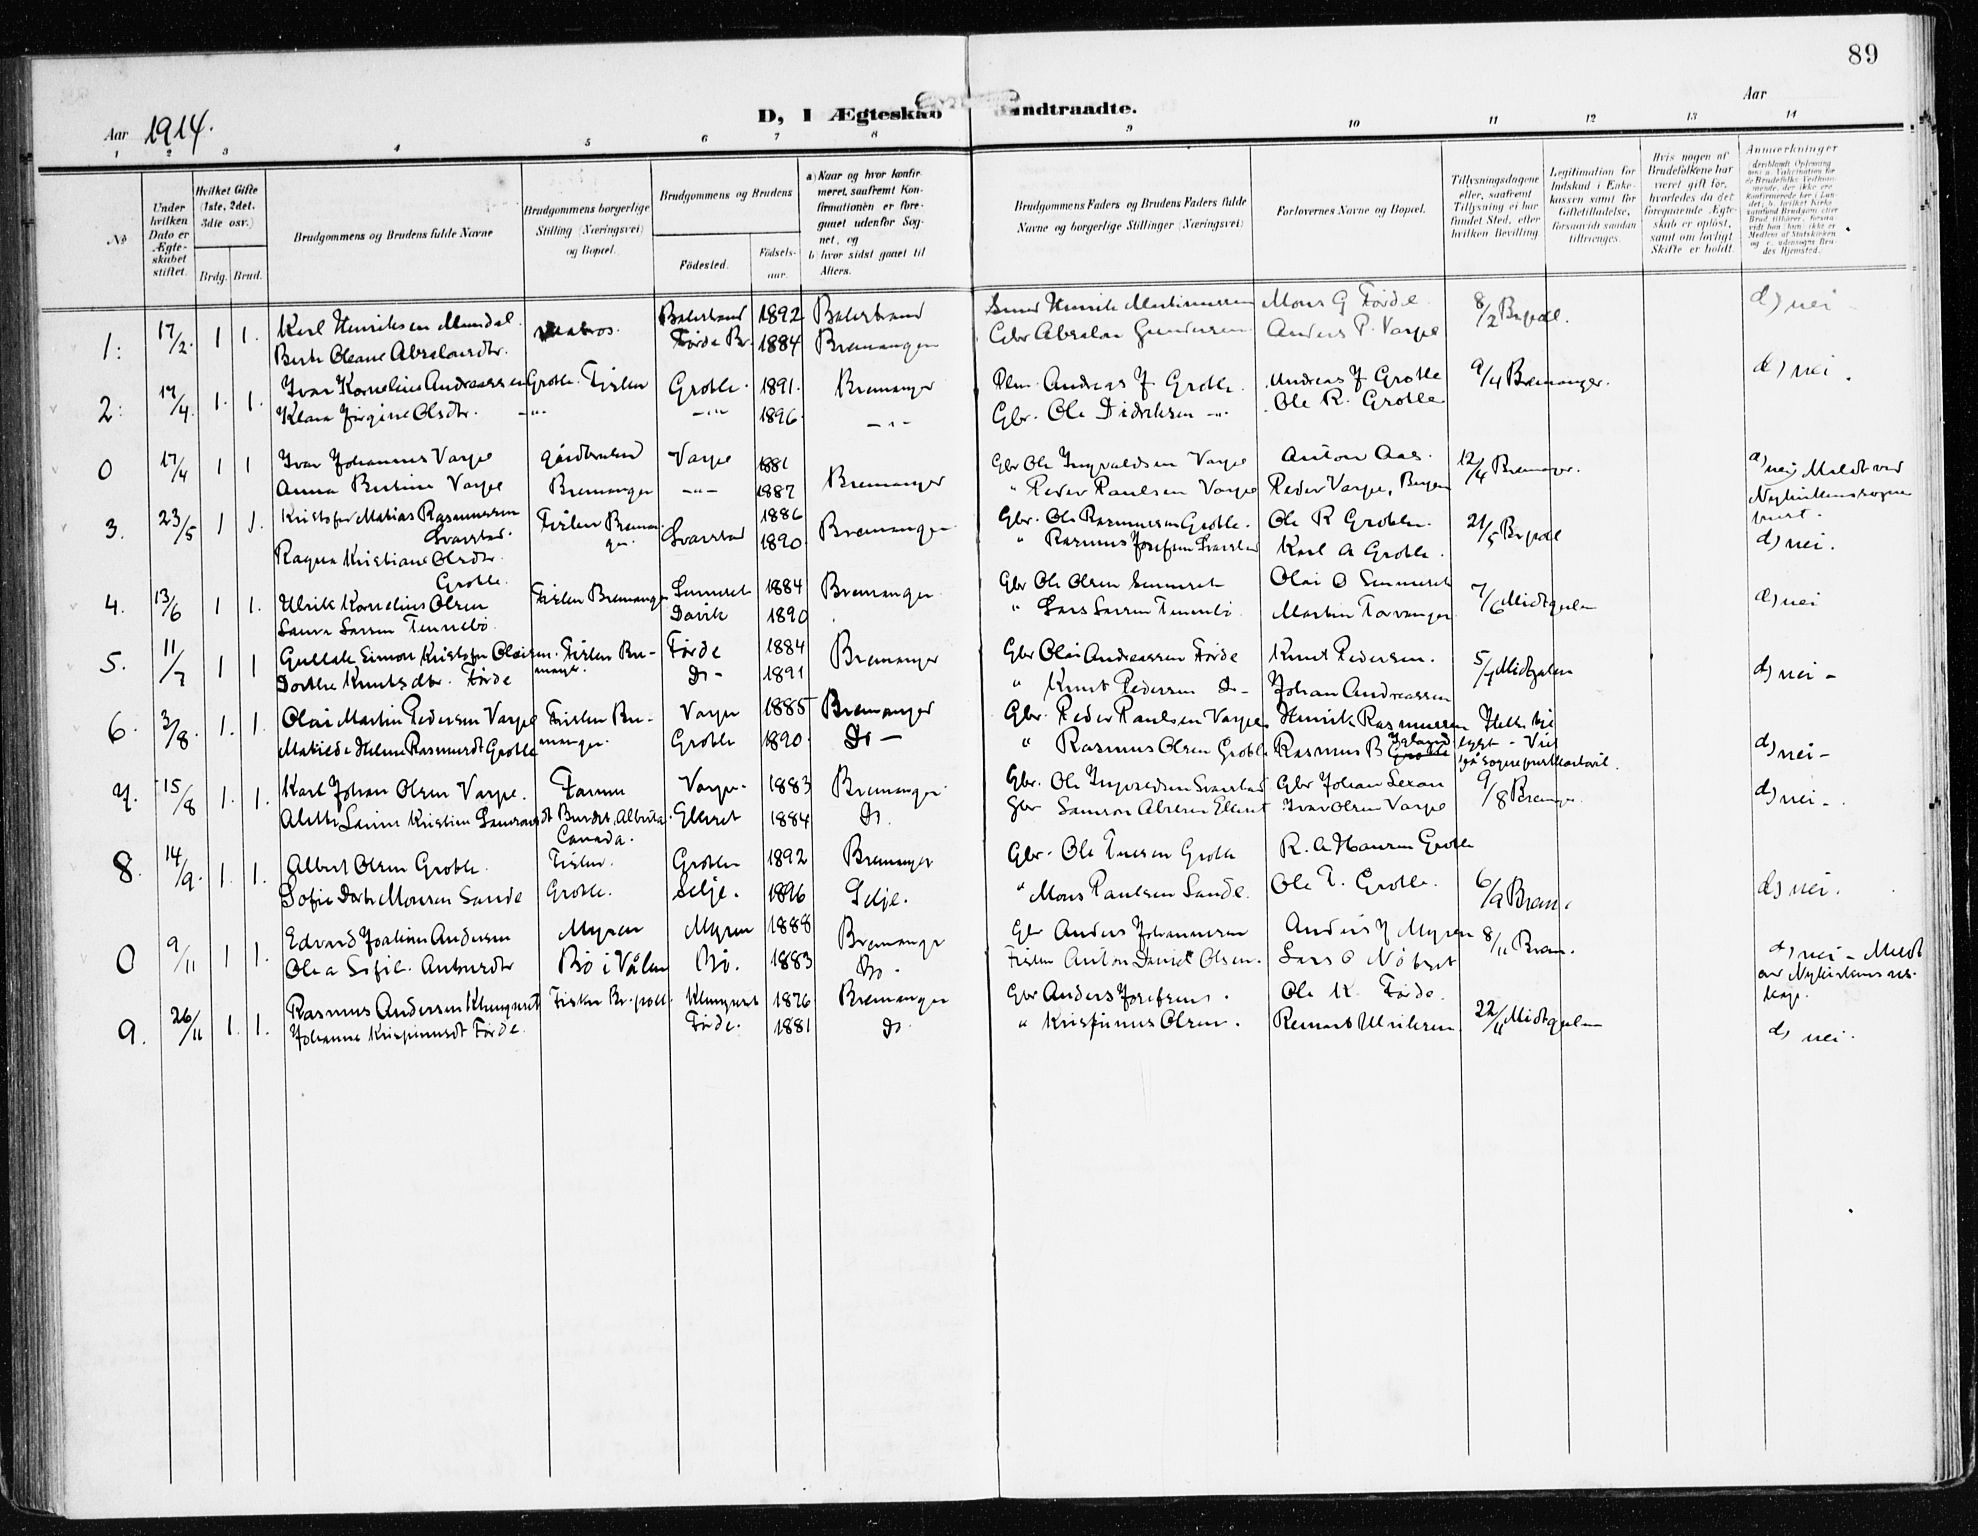 89
D, I Ægteskab Indtraadte.
Aar 1914.
Aar
1 2 3 4 5 6 7 8 9 10 11 12 13 14
No
Under hvilken Dato er Ægteskabet stiftet.
Hvilket Gifte (1ste, 2det, 3die osv.)
Brdg. Brud.
Brudgommens og Brudens fulde Navne
Brudgommens borgerlige Stilling (Næringsvei) og Bopæl.
Brudgommens og Brudens
Fødested.
Fødselsaar.
a) Naar og hvor konfirmeret, saafremt Konfirmationen er foregaaet udenfor Sognet, og
b) hvor sidst gaaet til Alters.
Brudgommens Faders og Brudens Faders fulde Navne og borgerlige Stillinger (Næringsvei)
Forlovernes Navne og Bopæl.
Tillysningsdagene eller, saafremt Tillysning ei har fundet Sted, efter hvilken Bevilling
Legitimation for Indskud i Enkekassen samt for Giftetilladelse, forsaavidt saadan tiltrænges.
Hvis nogen af Brudefolkene har været gift før, hvorledes da det foregaaende Ægteskab er opløst, samt om lovligt Skifte er holdt.
Anmerkninger
1: 17/2. 1 1. Karl Henriksen Mundal. Balestrand 1892 Balestrand Mons G Førde 8/2 d) nei -
Førde Br. 1884 Bremanger Gbr Absalon Gundersen Anders P. Varpe
2: 17/4. 1. 1. Ivar Kornelius Andreassen Grotle. Fisker Grotle. 1891. Bremanger Andreas J Grotle. Andreas J Grotle 9/4 Bremanger. d) nei.
Klara Jørgine Olsdtr. -"- -"- 1896. -"- Gbr. Ole Didriksen -"- Ole R. Grotle
0 17/4 1 1 Ivar Johannes Varpe Varpe 1881 Gbr Ole Ingvaldsen Varpe Anton Aas. 12/4 Bremanger. d) nei, Meldt ved
Anna Bertine Varpe Bremanger -"- 1887 Bremanger " Peder Paulsen Varpe Peder Varpe, Bergen
3. 23/5 1 1. Kristofer Matias Rasmussen Fisker Bremanger. 1886 Bremanger Gbr. Ole Rasmussen Grotle. Ole R Grotle. 21/5 d) nei.
Svarstad. Svarstad 1890 " Rasmus Josefsen Svarstad Karl A Grotle.
Ragna Kristiane Olsdtr. Grotle.
4. 13/6 1 1. Ulrik Kornelius Olsen Fisker Bremanger 1884 Bremanger. Gbr Ole Olsen 7/6 Midtgulen d) nei
Davik 1890 " Lars Larsen Tennebø Martin Torvanger
5. 11/7 1 1 Kristofer Olaisen. Fisker Bremanger. Førde 1884 Bremanger Gbr Olai Andreassen Førde Knut Pedersen. 5/7 Midtgulen d) nei -
Dorthe Knutsdtr. Førde Do- 1891 " Knut Pedersen Do- Johan Andreassen
6. 3/8. 1. 1. Olai Martin Pedersen Varpe Fisker Bremanger. Varpe 1885 Bremanger Gbr. Peder Paulsen Varpe Henrik Rasmussen d) nei-
Matilde Helene Rasmusdt Grotle Grotle 1890. Do- " Rasmus Olsen Grotle Rasmus B
7. 15/8 1. 1. Karl Johan Olsen Varpe. Farmer Varpe. 1883 Bremanger Gbr. Ole Ingvaldsen Svarstad Gbr Johan Sexau 9/8 d) nei-.
Canada. 1884 Do. Gbr Samson Ivar Olsen Varpe
8. 14/9. 1. 1. Albert Olsen Grotle. Fisker. Grotle 1892 Bremanger Gbr. Ole Grotle R. A Hansen Grotle 6/9 Brem. d) nei.
Sofie Dorte Monsen Sande Grotle. Selje. 1896 Selje. " Mons Paulsen Sande. Ole T. Grotle.
0 9/11 1 1. Edvard Joakim Andersen Myren Myren 1888 Bremanger Gbr Anders Johannesen Anders J Myren 8/11 Brem. d) nei - Meldt
Bø i Vålen Bø. 1883 Do - Fisker Anton David Olsen. Lars O Nøtset
9. 26/11 1. 1. Rasmus Andersen Klungreset Klungreset 1876 Bremanger Gbr Anders Josefsen. Ole K. Førde. 22/11 Midtgulen d) nei.
Johanne Krispinusdt Førde. Førde. 1881 Do " Krispinus Olsen.